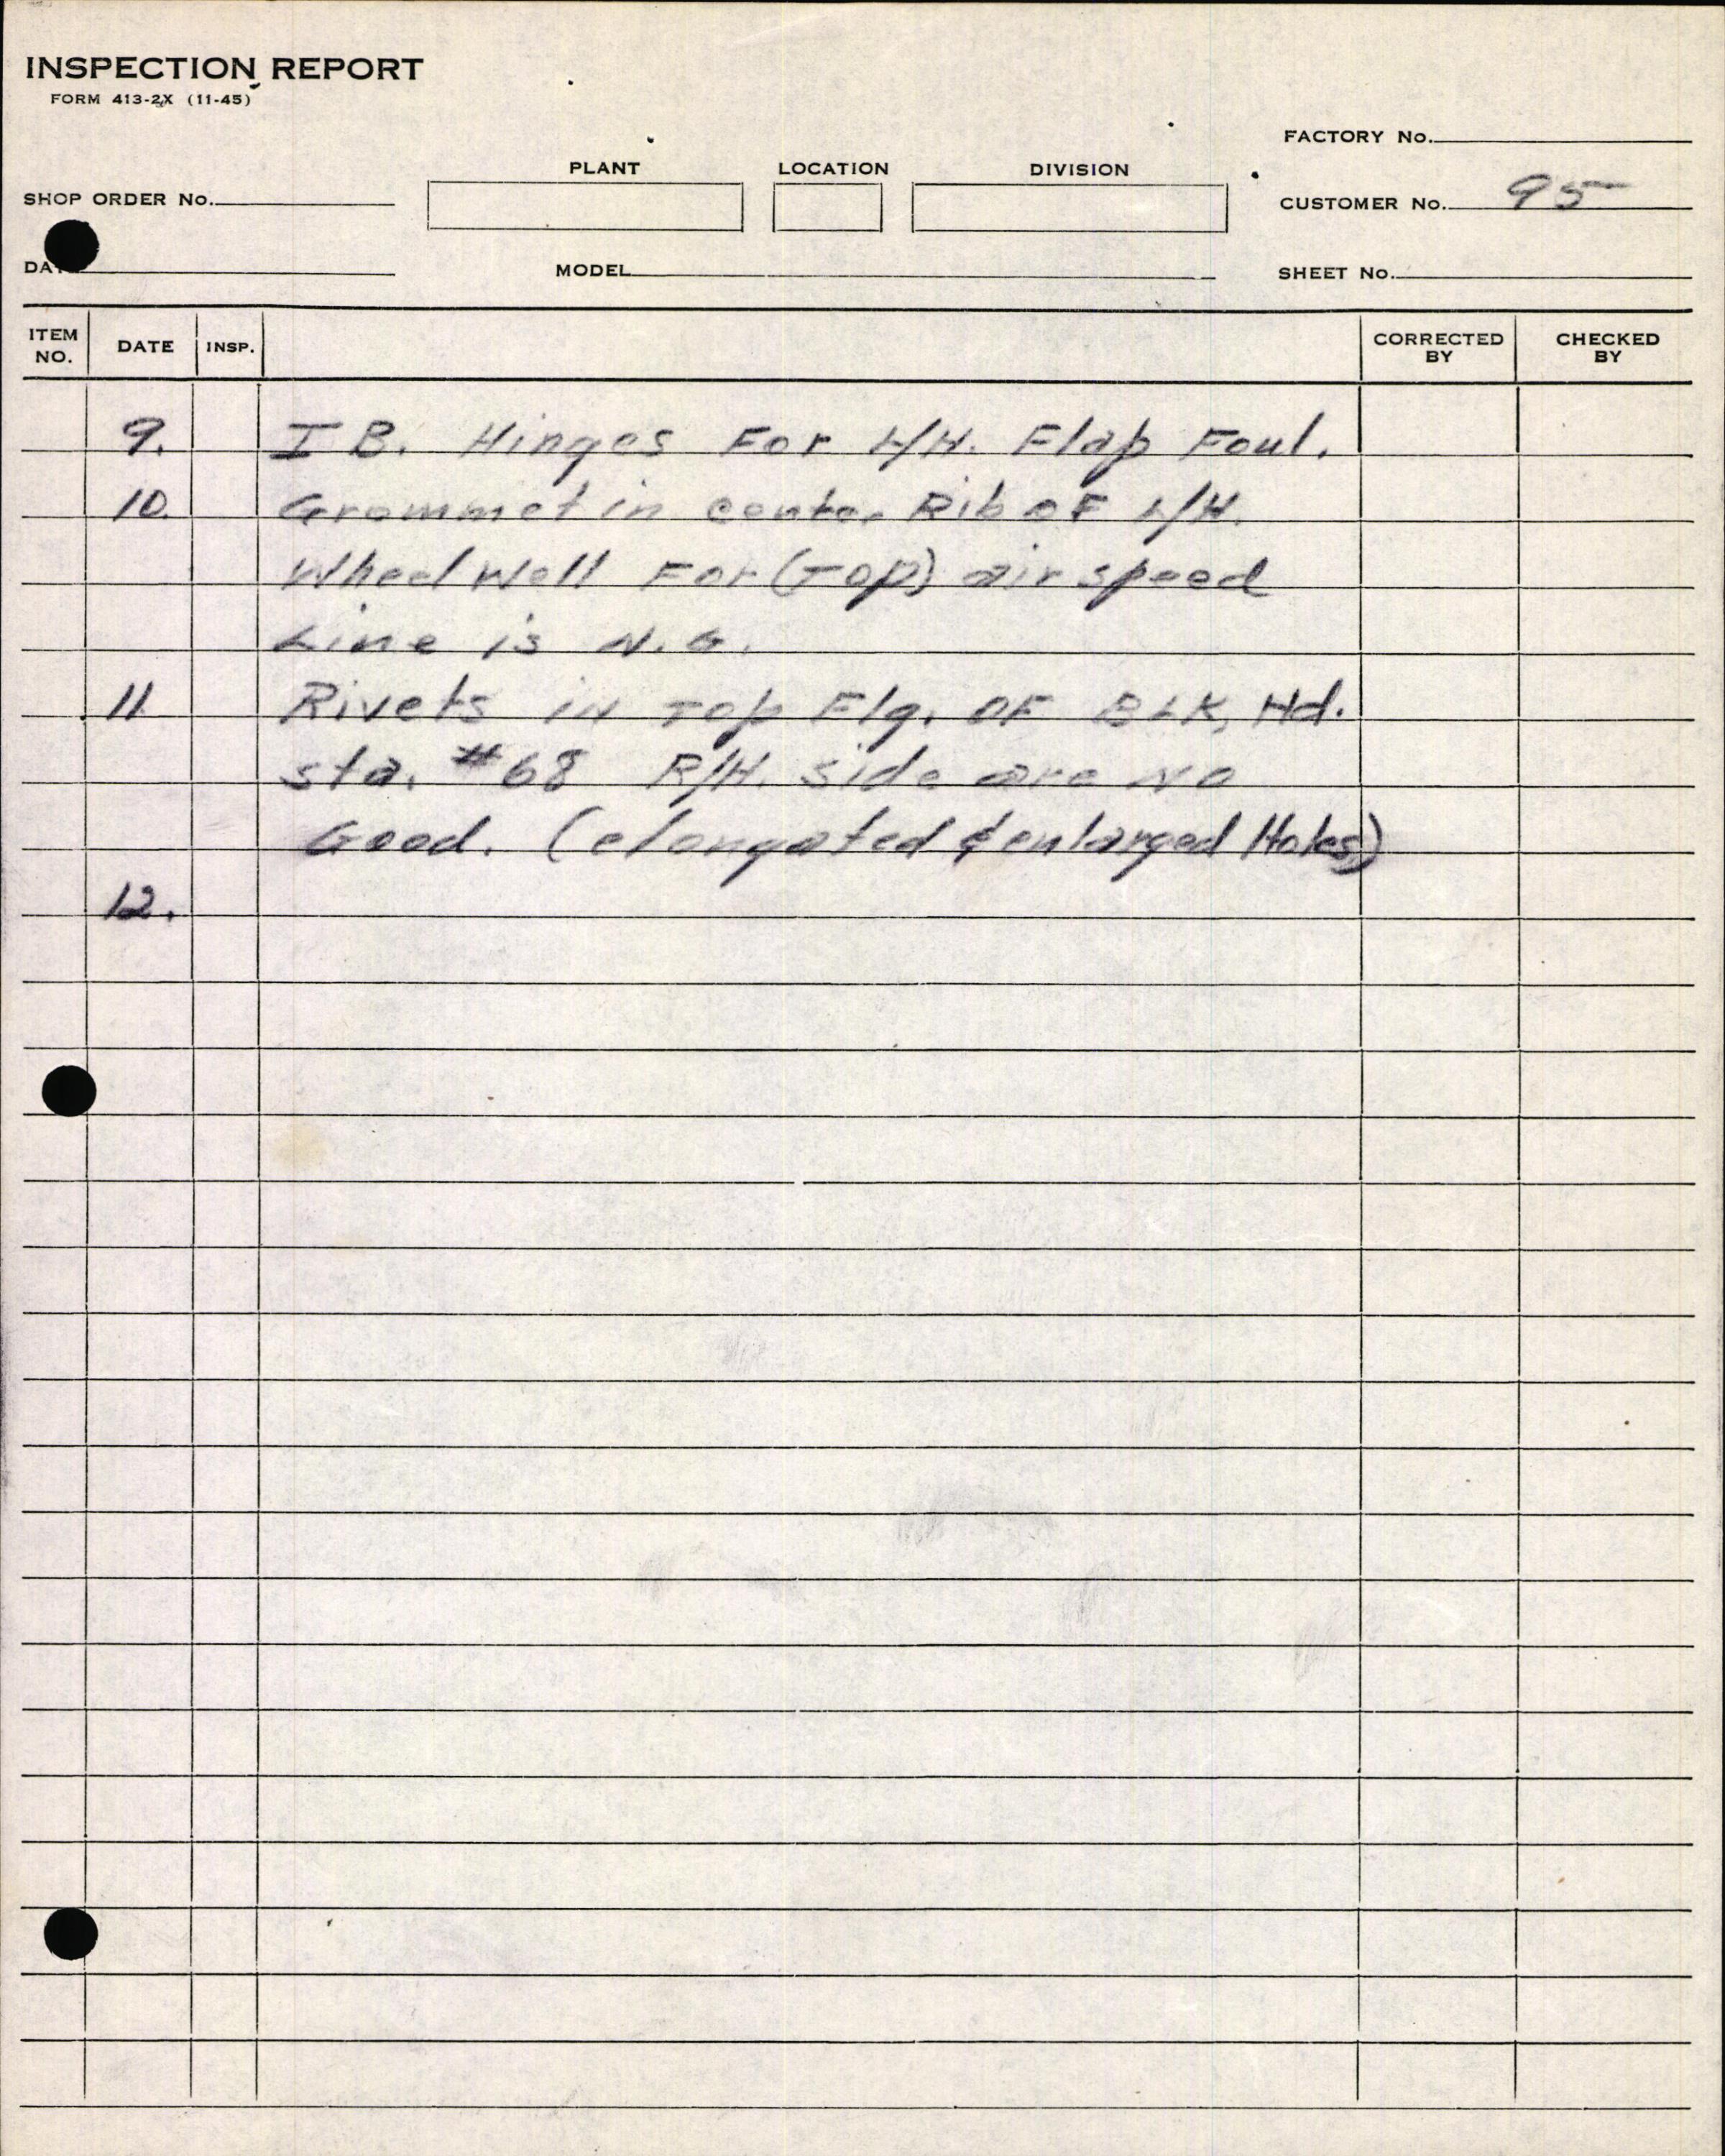 INSPECTION REPORT
FORM 413-2X (11-45)
FACTORY No.
PLANT LOCATION DIVISION
SHOP ORDER No.
CUSTOMER No. 95
DA
MODEL
SHEET No.
ITEM NO. DATE INSP. CORRECTED BY CHECKED BY
9. I B. Hinges For L/H. Flap Foul.
10. Grommet in center Rib OF L/H.
Wheel Well For (Top) airspeed
Line is N.G.
11. Rivets in Top Flg. OF BLK, Hd.
sta. #68 R/H. side are No
Good. (elongated & enlarged Holes)
12.